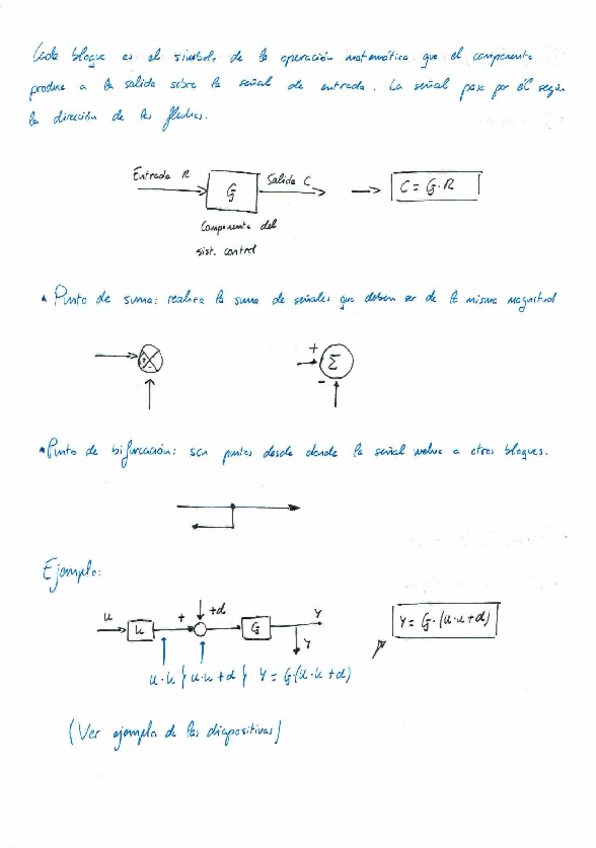 Cada bloque es el símbolo de la operación matemática que el componente
produce a la salida sobre la señal de entrada. La señal pasa por él según
la dirección de las flechas.
Entrada R G Salida C C = G·R
Componente del
sist. control
Punto de suma: realiza la suma de señales que deben ser de la misma magnitud
+ -
+ Σ -
Punto de bifurcación: son puntos desde donde la señal vuelve a otros bloques.
Ejemplo:
u K + +d G Y Y Y = G·(K·u+d)
u·K u·K+d Y = G·(u·K+d)
(Ver ejemplo de las diapositivas)